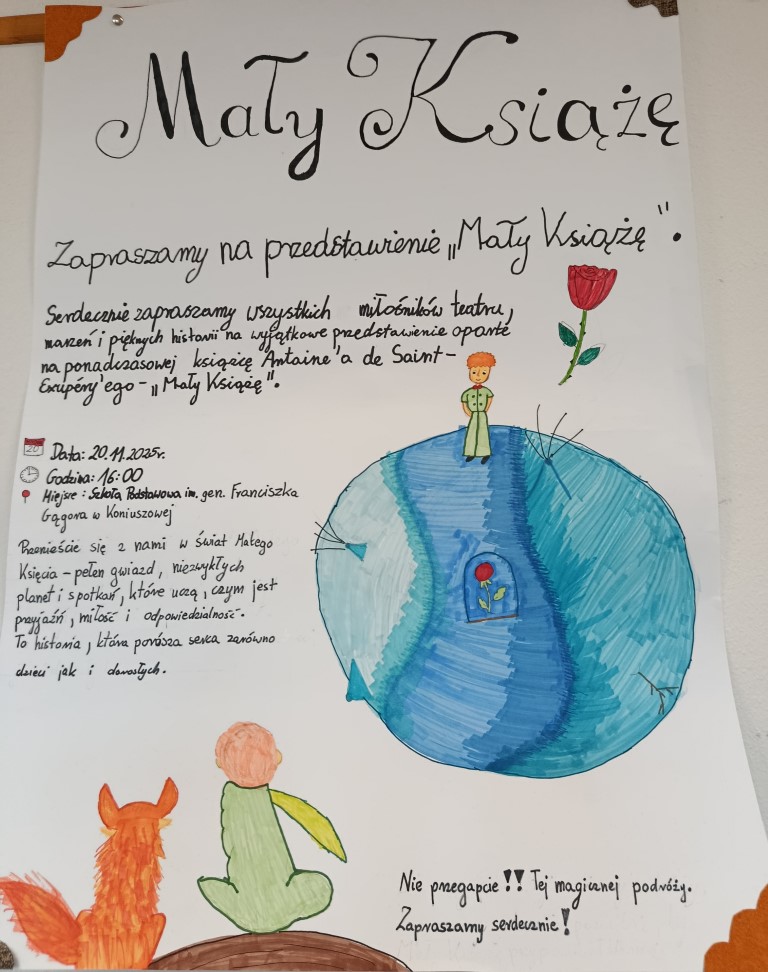 Mały Książę
Zapraszamy na przedstawienie „Mały Książę".
Serdecznie zapraszamy wszystkich miłośników teatru,
marzeń i pięknych historii na wyjątkowe przedstawienie oparte
na ponadczasowej książcę Antoine'a de Saint-
Exupéry'ego - „Mały Książę".
20
Data: 20.11.2025r.
Godzina: 16:00
Miejsce: Szkoła Podstawowa im. gen. Franciszka
Gągora w Koniuszowej
Przenieście się z nami w świat Małego
Księcia - pełen gwiazd, niezwykłych
planet i spotkań, które uczą, czym jest
przyjaźń, miłość i odpowiedzialność.
To historia, która porusza serca zarówno
dzieci jak i dorosłych.
Nie przegapcie !! Tej magicznej podróży.
Zapraszamy serdecznie!